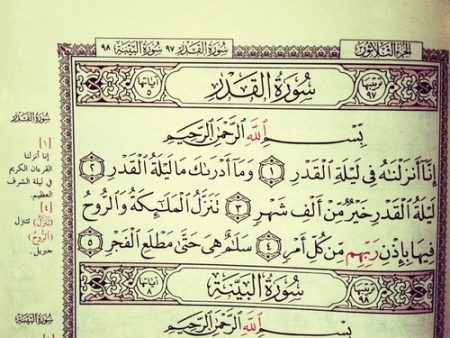 الجزء الثلاثون
سورة القدر ٩٧ سورة البينة ٩٨
ترتيبها ٩٧ سُورَةُ القَدْرِ آياتها ٥
بِسْمِ اللَّهِ الرَّحْمَٰنِ الرَّحِيمِ
إِنَّا أَنزَلْنَٰهُ فِى لَيْلَةِ الْقَدْرِ ١ وَمَا أَدْرَىٰكَ مَا لَيْلَةُ الْقَدْرِ ٢
لَيْلَةُ الْقَدْرِ خَيْرٌ مِّنْ أَلْفِ شَهْرٍ ٣ تَنَزَّلُ الْمَلَٰٓئِكَةُ وَالرُّوحُ
فِيهَا بِإِذْنِ رَبِّهِم مِّن كُلِّ أَمْرٍ ٤ سَلَٰمٌ هِىَ حَتَّىٰ مَطْلَعِ الْفَجْرِ ٥
ترتيبها ٩٨ سُورَةُ البَيِّنَةِ آياتها ٨
بِسْمِ اللَّهِ الرَّحْمَٰنِ الرَّحِيمِ
سورة القدر
[١]
إنا أنزلنا
القرءان الكريم
في ليلة الشرف
العظيم.
[٤]
(تَنَزَّلُ) تتنزل
(الرُّوحُ)
جبريل.
سورة البينة